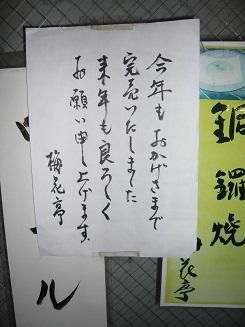 今年もおかげさまで
完売いたしました
来年も良ろしく
お願い申し上げます。
梅花亭
銅鑼焼
花亭
ール